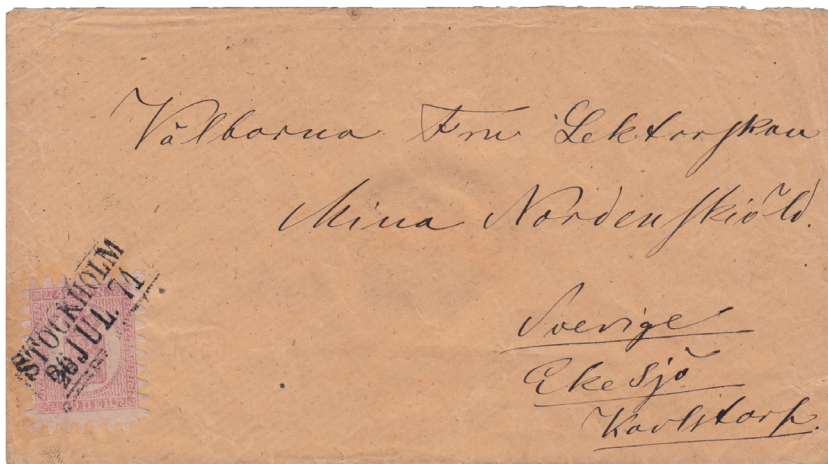 Välborna Fru Lektorskan
Mina Nordenskiöld.
Sverige
Ekesjö
Karlstorp.
STOCKHOLM
26 JUL. 71